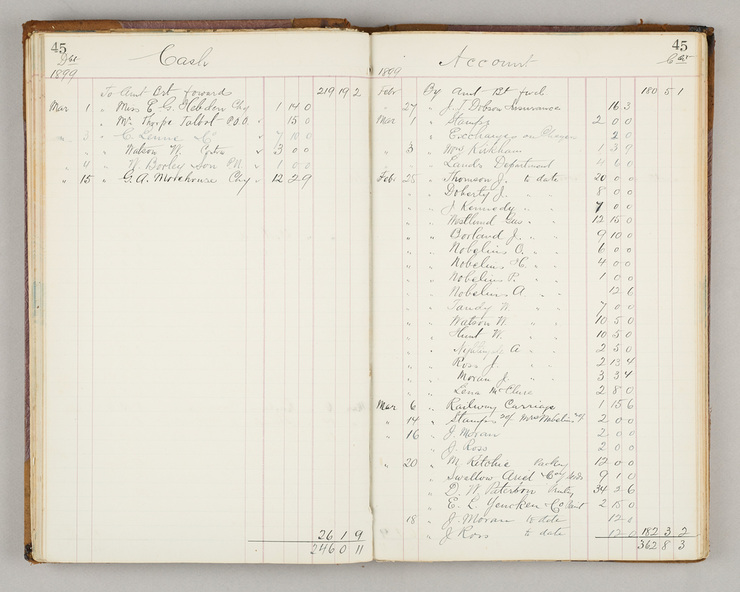 45
Dbt
Cash
1899
To Amt Brt forward 219 19 2
Mar 1 " Miss E. G. Hebden Chq 1 14 0
" Mr Thorpe Talbot P.O.O. " 15 0
" 3 " C Lenne 7 10 0
" Watson W. " 3 0 0
" 4 " W Booley & Son 1 0 0
" 15 " G. A. Morehouse Chq " 12 2 9
26 1 9
246 0 11
45
Account
1899
Febr By Amt Bt fwd 180 5 1
" 27 " J. J. Dobson Insurance 16 3
Mar 1 " Stamps 2 0 0
" Exchanges on Cheques 2 0
" 3 " Mrs Kirkham 1 3 9
" Lands Department
Feb 25 " Thomson J. to date 20 0 0
" " Doherty J. " " 8 0 0
" " J Kennedy " " 7 0 0
" " Westlund Gus " " 12 15 0
" " Borland J. " " 9 10 0
" " Nobelius C. " " 6 0 0
" " Nobelius H. " " 4 0 0
" " Nobelius P. " " 1 0 0
" " Nobelius A " " 12 6
" " Tandy W. " 7 0 0
" " Watson W. " 10 5 0
" " Hunt W. " 10 5 0
" " A " " 2 5 0
" " Ross J. " " 2 13 4
" " Moran J. " " 3 3 4
" " Lena McClure 2 8 0
Mar 6 " Railway Carriage 1 15 6
" 14 " Stamps Mrs Nobelius 2 0 0
" 16 " J Moran 2 0 0
" J. Ross 2 0 0
" 20 " M Ritchie Packing 12 0 0
" Swallow Ariel & Coy 9 1 0
" D. W. Paterson Printing 34 2 6
" E. L. Yencken & Co 2 15 0
18 " J. Moran to date 12 0
" J Ross to date 12 0 182 3 2
362 8 3